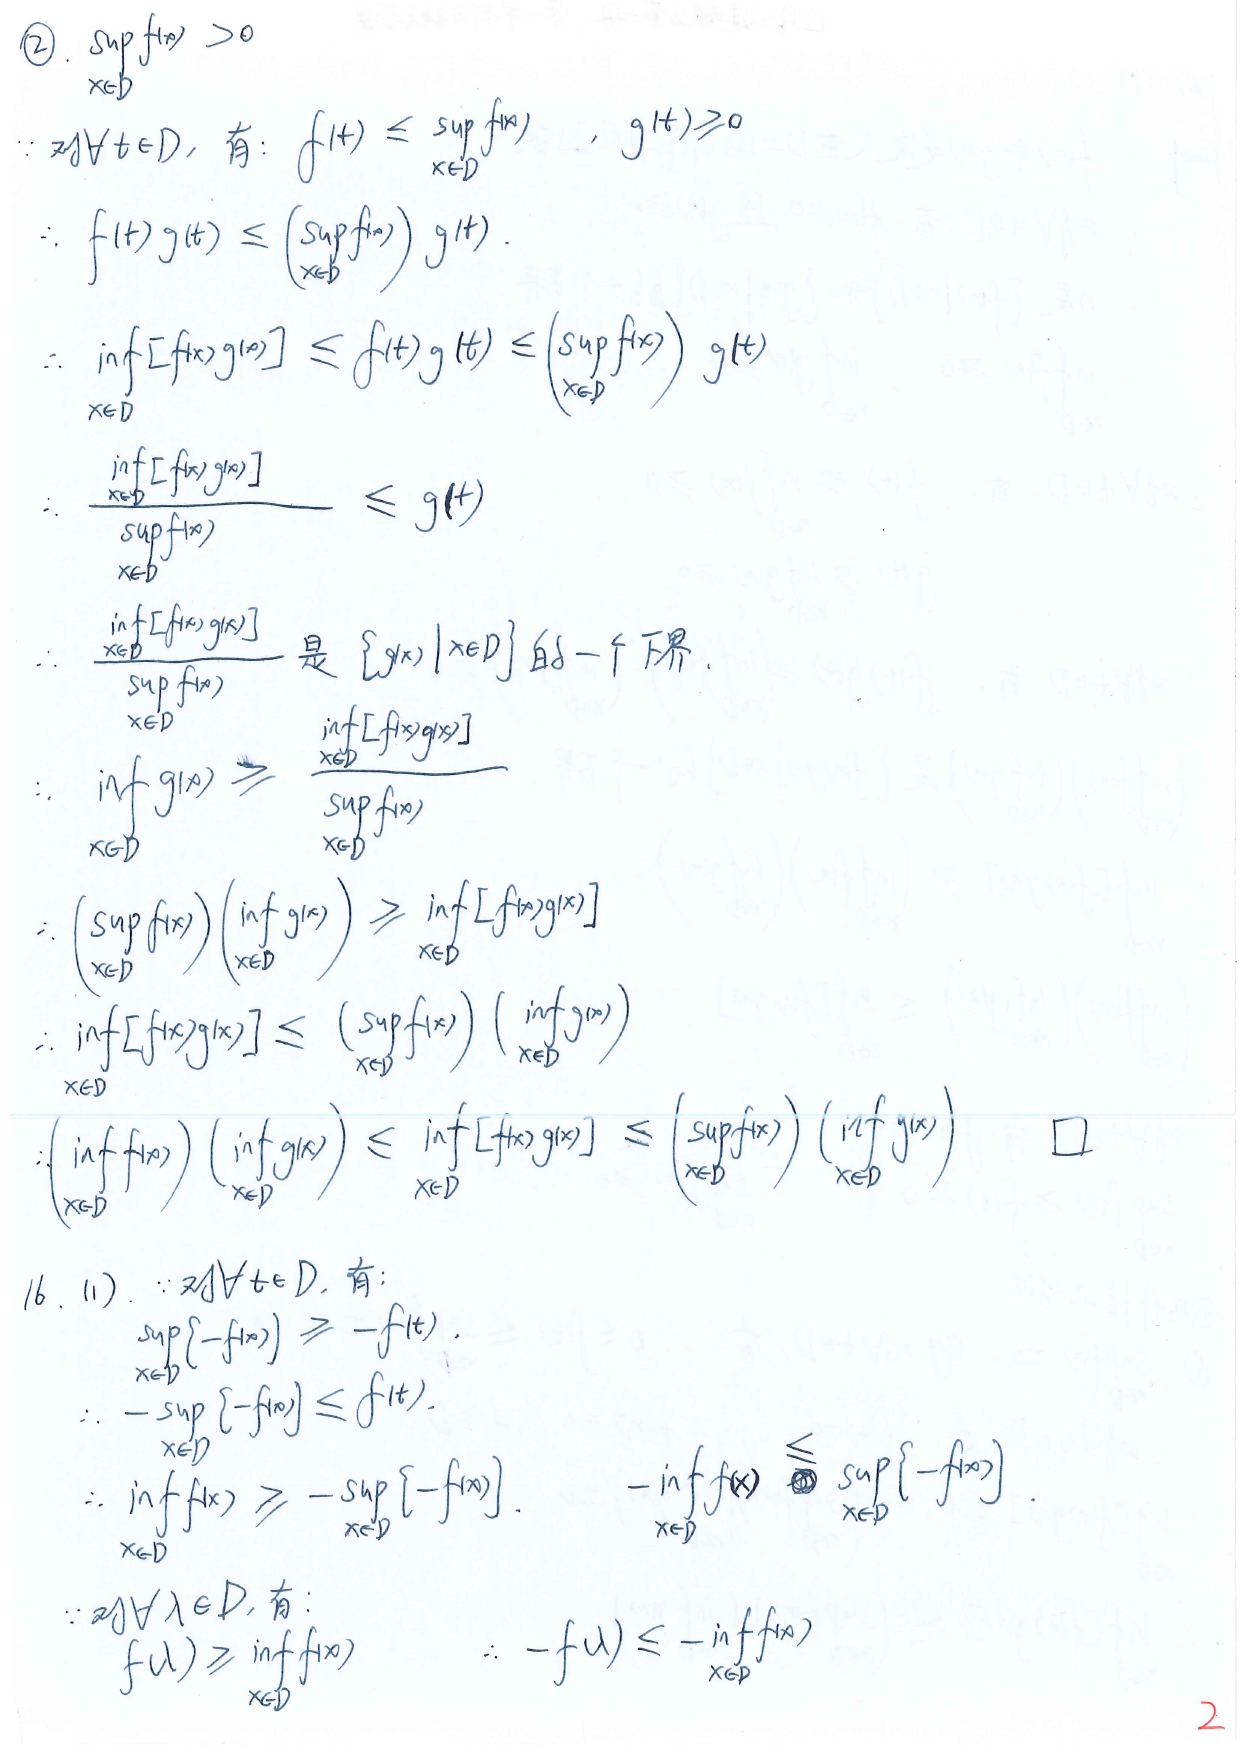 ②. sup_{x∈D} f(x) >0
∵ 对∀t∈D, 有: f(t) ≤ sup_{x∈D} f(x) , g(t)≥0
∴ f(t)g(t) ≤ (sup_{x∈D} f(x)) g(t).
∴ inf_{x∈D} [f(x)g(x)] ≤ f(t)g(t) ≤ (sup_{x∈D} f(x)) g(t)
∴ inf_{x∈D} [f(x)g(x)] / sup_{x∈D} f(x) ≤ g(t)
∴ inf_{x∈D} [f(x)g(x)] / sup_{x∈D} f(x) 是 {g(x)|x∈D} 的一个下界.
∴ inf_{x∈D} g(x) ≥ inf_{x∈D} [f(x)g(x)] / sup_{x∈D} f(x)
∴ (sup_{x∈D} f(x)) (inf_{x∈D} g(x)) ≥ inf_{x∈D} [f(x)g(x)]
∴ inf_{x∈D} [f(x)g(x)] ≤ (sup_{x∈D} f(x)) (inf_{x∈D} g(x))
∴ (inf_{x∈D} f(x)) (inf_{x∈D} g(x)) ≤ inf_{x∈D} [f(x)g(x)] ≤ (sup_{x∈D} f(x)) (inf_{x∈D} g(x)) □
16. (1). ∵ 对∀t∈D, 有:
sup_{x∈D} {-f(x)} ≥ -f(t).
∴ -sup_{x∈D} {-f(x)} ≤ f(t).
∴ inf_{x∈D} f(x) ≥ -sup_{x∈D} {-f(x)}. -inf_{x∈D} f(x) ≤ sup_{x∈D} {-f(x)}.
∵ 对∀λ∈D, 有:
f(λ) ≥ inf_{x∈D} f(x) ∴ -f(λ) ≤ -inf_{x∈D} f(x)
2